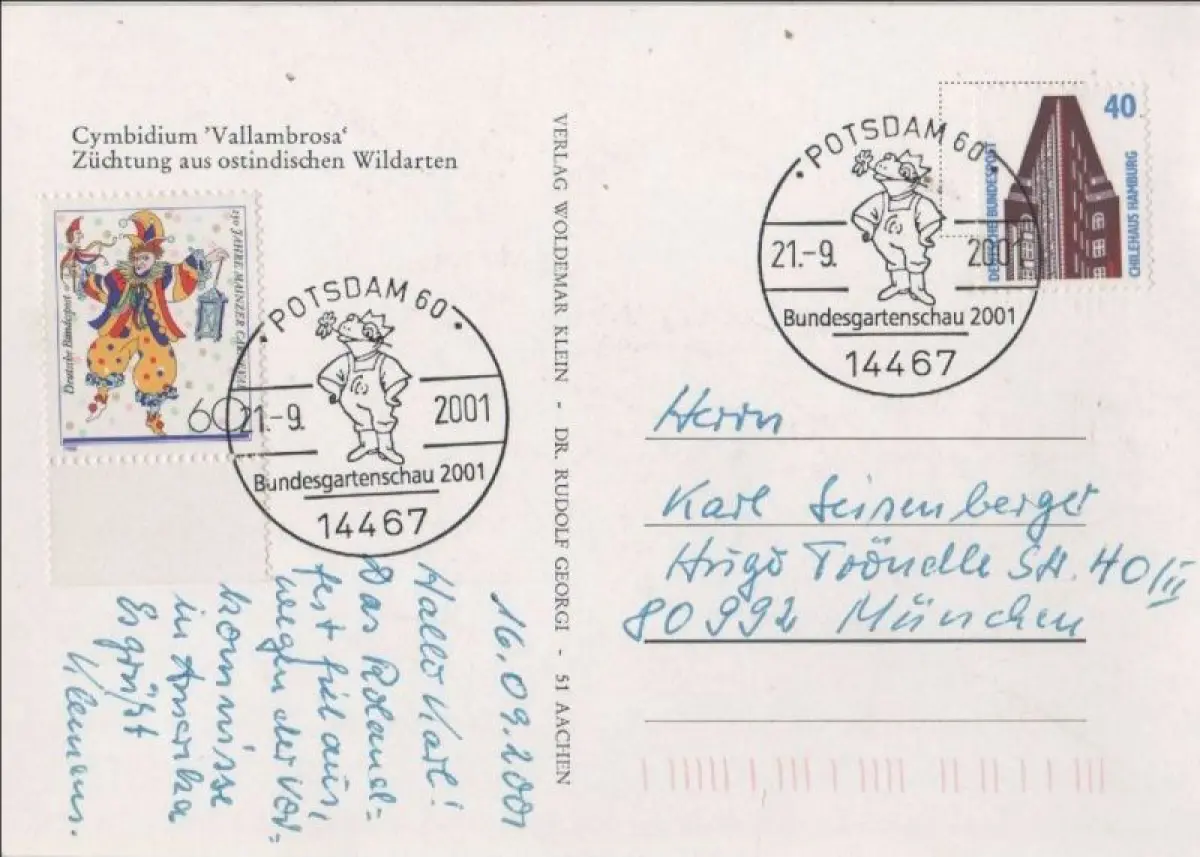 Cymbidium 'Vallambrosa'
Züchtung aus ostindischen Wildarten
150 JAHRE MAINZER CARNEVAL
Deutsche Bundespost
60
POTSDAM 60
21.-9. 2001
Bundesgartenschau 2001
14467
16.09.2001
Hallo Karl!
Das Roland=
fest fiel aus,
wegen der Vor=
kommnisse
in Amerika
Es grüßt
Klemens.
VERLAG WOLDEMAR KLEIN - DR. RUDOLF GEORGI - 51 AACHEN
POTSDAM 60
21.-9. 2001
Bundesgartenschau 2001
14467
40
DEUTSCHE BUNDESPOST
CHILEHAUS HAMBURG
Herrn
Karl Seisenberger
Hugo Tröndle Str. 40/III
80992 München